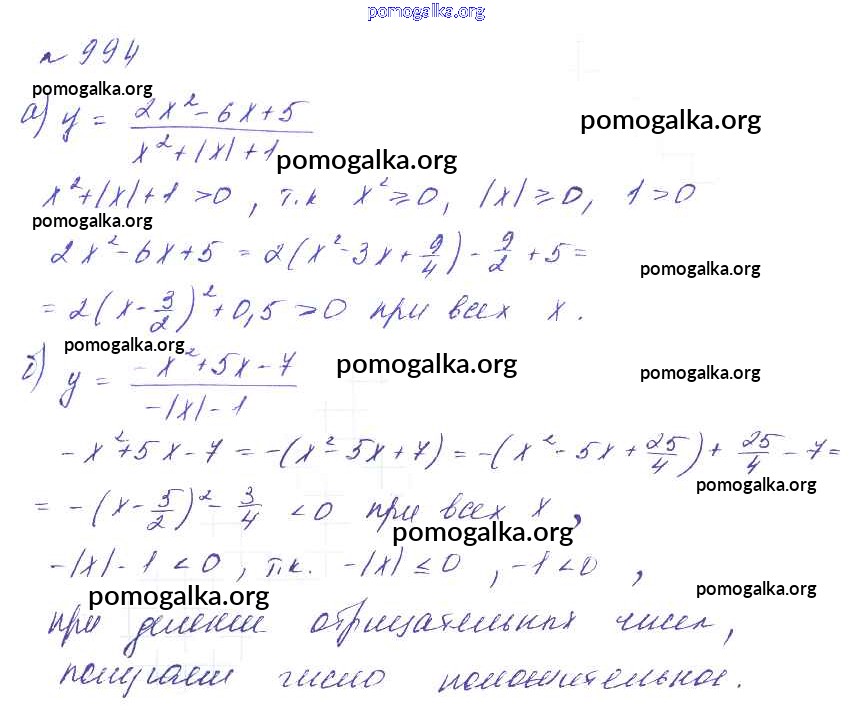 pomogalka.org
№ 994
pomogalka.org
а) y = (2x² - 6x + 5)/(x² + |x| + 1)
pomogalka.org
pomogalka.org
x² + |x| + 1 > 0, т.к x² ≥ 0, |x| ≥ 0, 1 > 0
pomogalka.org
2x² - 6x + 5 = 2(x² - 3x + 9/4) - 9/2 + 5 =
pomogalka.org
= 2(x - 3/2)² + 0,5 > 0 при всех x.
pomogalka.org
б) y = (-x² + 5x - 7)/(-|x| - 1)
pomogalka.org
pomogalka.org
-x² + 5x - 7 = -(x² - 5x + 7) = -(x² - 5x + 25/4) + 25/4 - 7 =
pomogalka.org
= -(x - 5/2)² - 3/4 < 0 при всех x,
pomogalka.org
-|x| - 1 < 0, т.к. -|x| ≤ 0, -1 < 0,
pomogalka.org
pomogalka.org
при делении отрицательных чисел,
получаем число положительное.